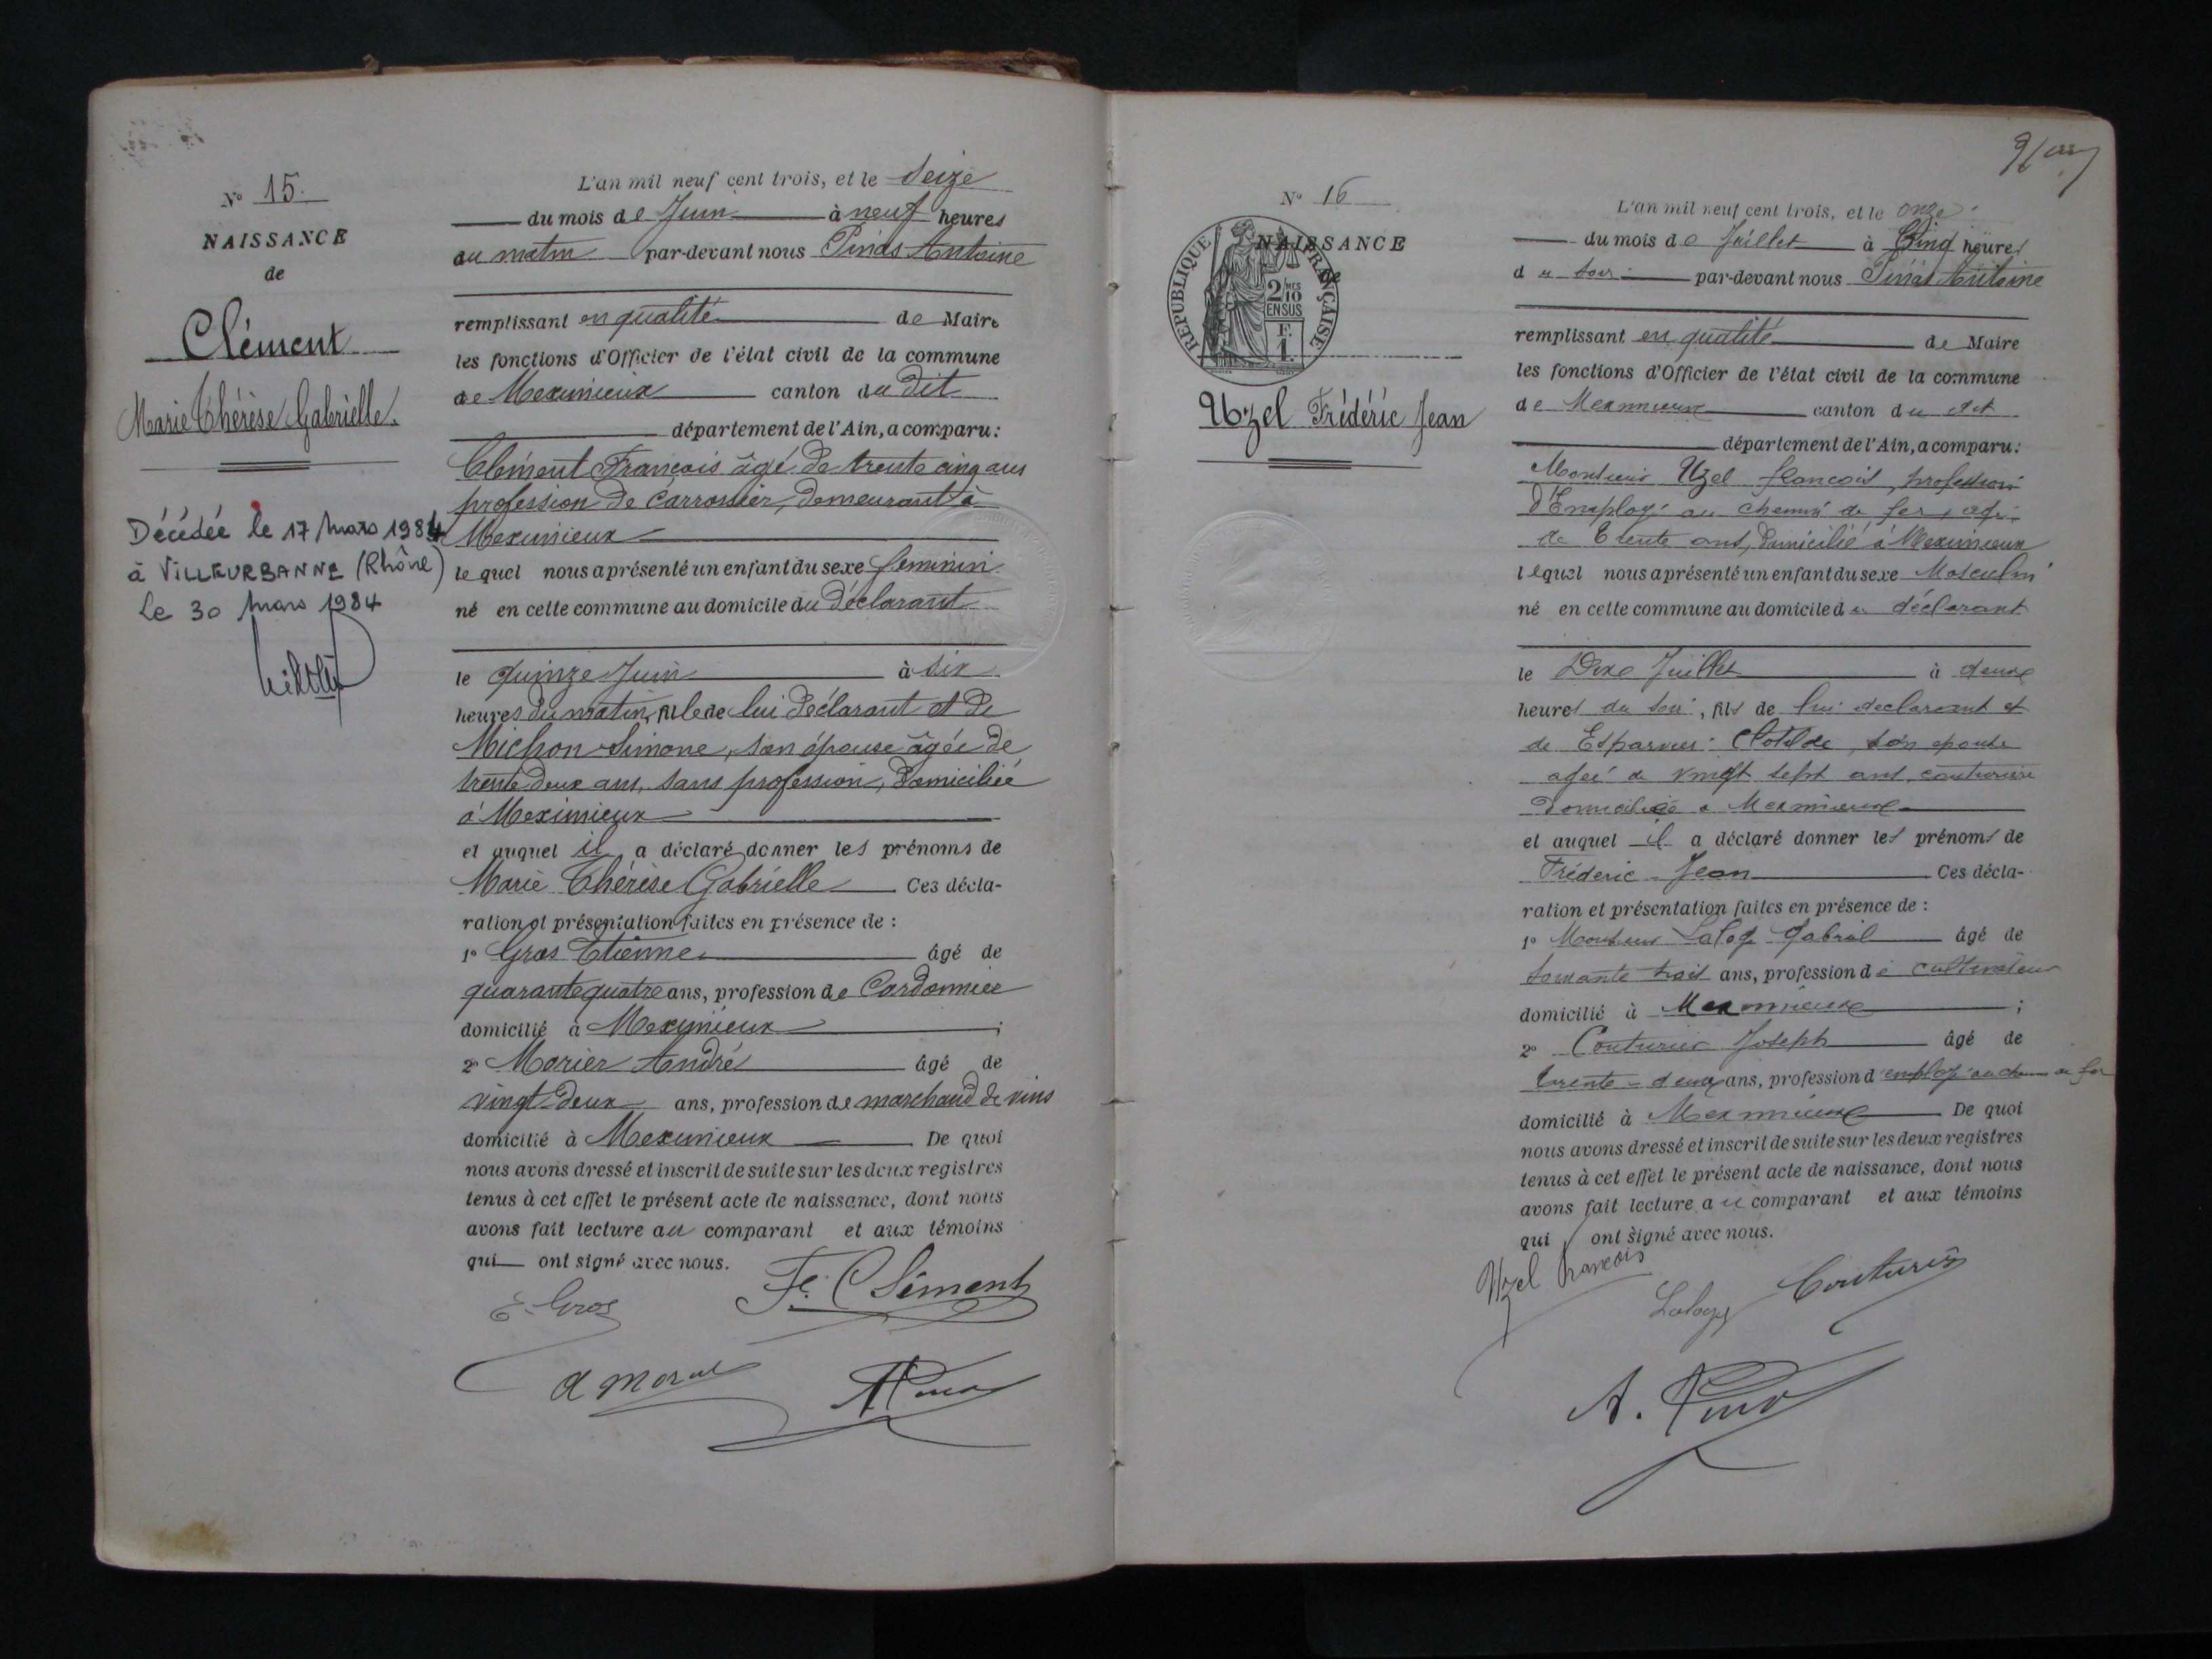 N° 15
NAISSANCE
de
Clément
Marie Thérèse Gabrielle.
Décédée le 17 mars 1984
à VILLEURBANNE (Rhône)
Le 30 mars 1984
L'an mil neuf cent trois, et le Seize
du mois de Juin à neuf heures
du matin par-devant nous Pinâs Antoine
remplissant en qualité de Maire
les fonctions d'Officier de l'état civil de la commune
de Meximieux canton du dit
département de l'Ain, a comparu:
Clément François âgé de trente cinq ans
profession de Carrossier, demeurant à
Meximieux
lequel nous a présenté un enfant du sexe féminin
né en cette commune au domicile du Déclarant
le quinze Juin à six
heures du matin, fille de lui déclarant et de
Michon Simone, son épouse âgée de
trente deux ans, sans profession, domiciliée
à Meximieux
et auquel il a déclaré donner les prénoms de
Marie Thérèse Gabrielle Ces décla-
ration et présentation faites en présence de :
1° Gros Etienne âgé de
quarante quatre ans, profession de Cordonnier
domicilié à Meximieux ;
2° Morier André âgé de
vingt deux ans, profession de marchand de vins
domicilié à Meximieux De quoi
nous avons dressé et inscrit de suite sur les deux registres
tenus à cet effet le présent acte de naissance, dont nous
avons fait lecture au comparant et aux témoins
qui ont signé avec nous.
F. Clément
E. Gros
N° 16
NAISSANCE
de
RÉPUBLIQUE FRANÇAISE
2/10
EN SUS
F.
1
Uzel Frédéric Jean
L'an mil neuf cent trois, et le onze
du mois de Juillet à Cinq heures
du soir par-devant nous Pinâs Antoine
remplissant en qualité de Maire
les fonctions d'Officier de l'état civil de la commune
de Meximieux canton du dit
département de l'Ain, a comparu:
Monsieur Uzel François, profession
d'Employé au chemin de fer, agé
de trente ans, domicilié à Meximieux
lequel nous a présenté un enfant du sexe Masculin
né en cette commune au domicile du déclarant
le Dix Juillet à deux
heures du soir, fils de lui déclarant et
de Clotilde, son épouse
agée de vingt sept ans, couturière
domiciliée à Meximieux
et auquel il a déclaré donner les prénoms de
Frédéric Jean Ces décla-
ration et présentation faites en présence de :
1° Monsieur Gabriel âgé de
soixante trois ans, profession de cultivateur
domicilié à Meximieux ;
2° Couturier Joseph âgé de
trente-deux ans, profession d'employé au chemin de fer
domicilié à Meximieux De quoi
nous avons dressé et inscrit de suite sur les deux registres
tenus à cet effet le présent acte de naissance, dont nous
avons fait lecture au comparant et aux témoins
qui ont signé avec nous.
Uzel François
Couturier